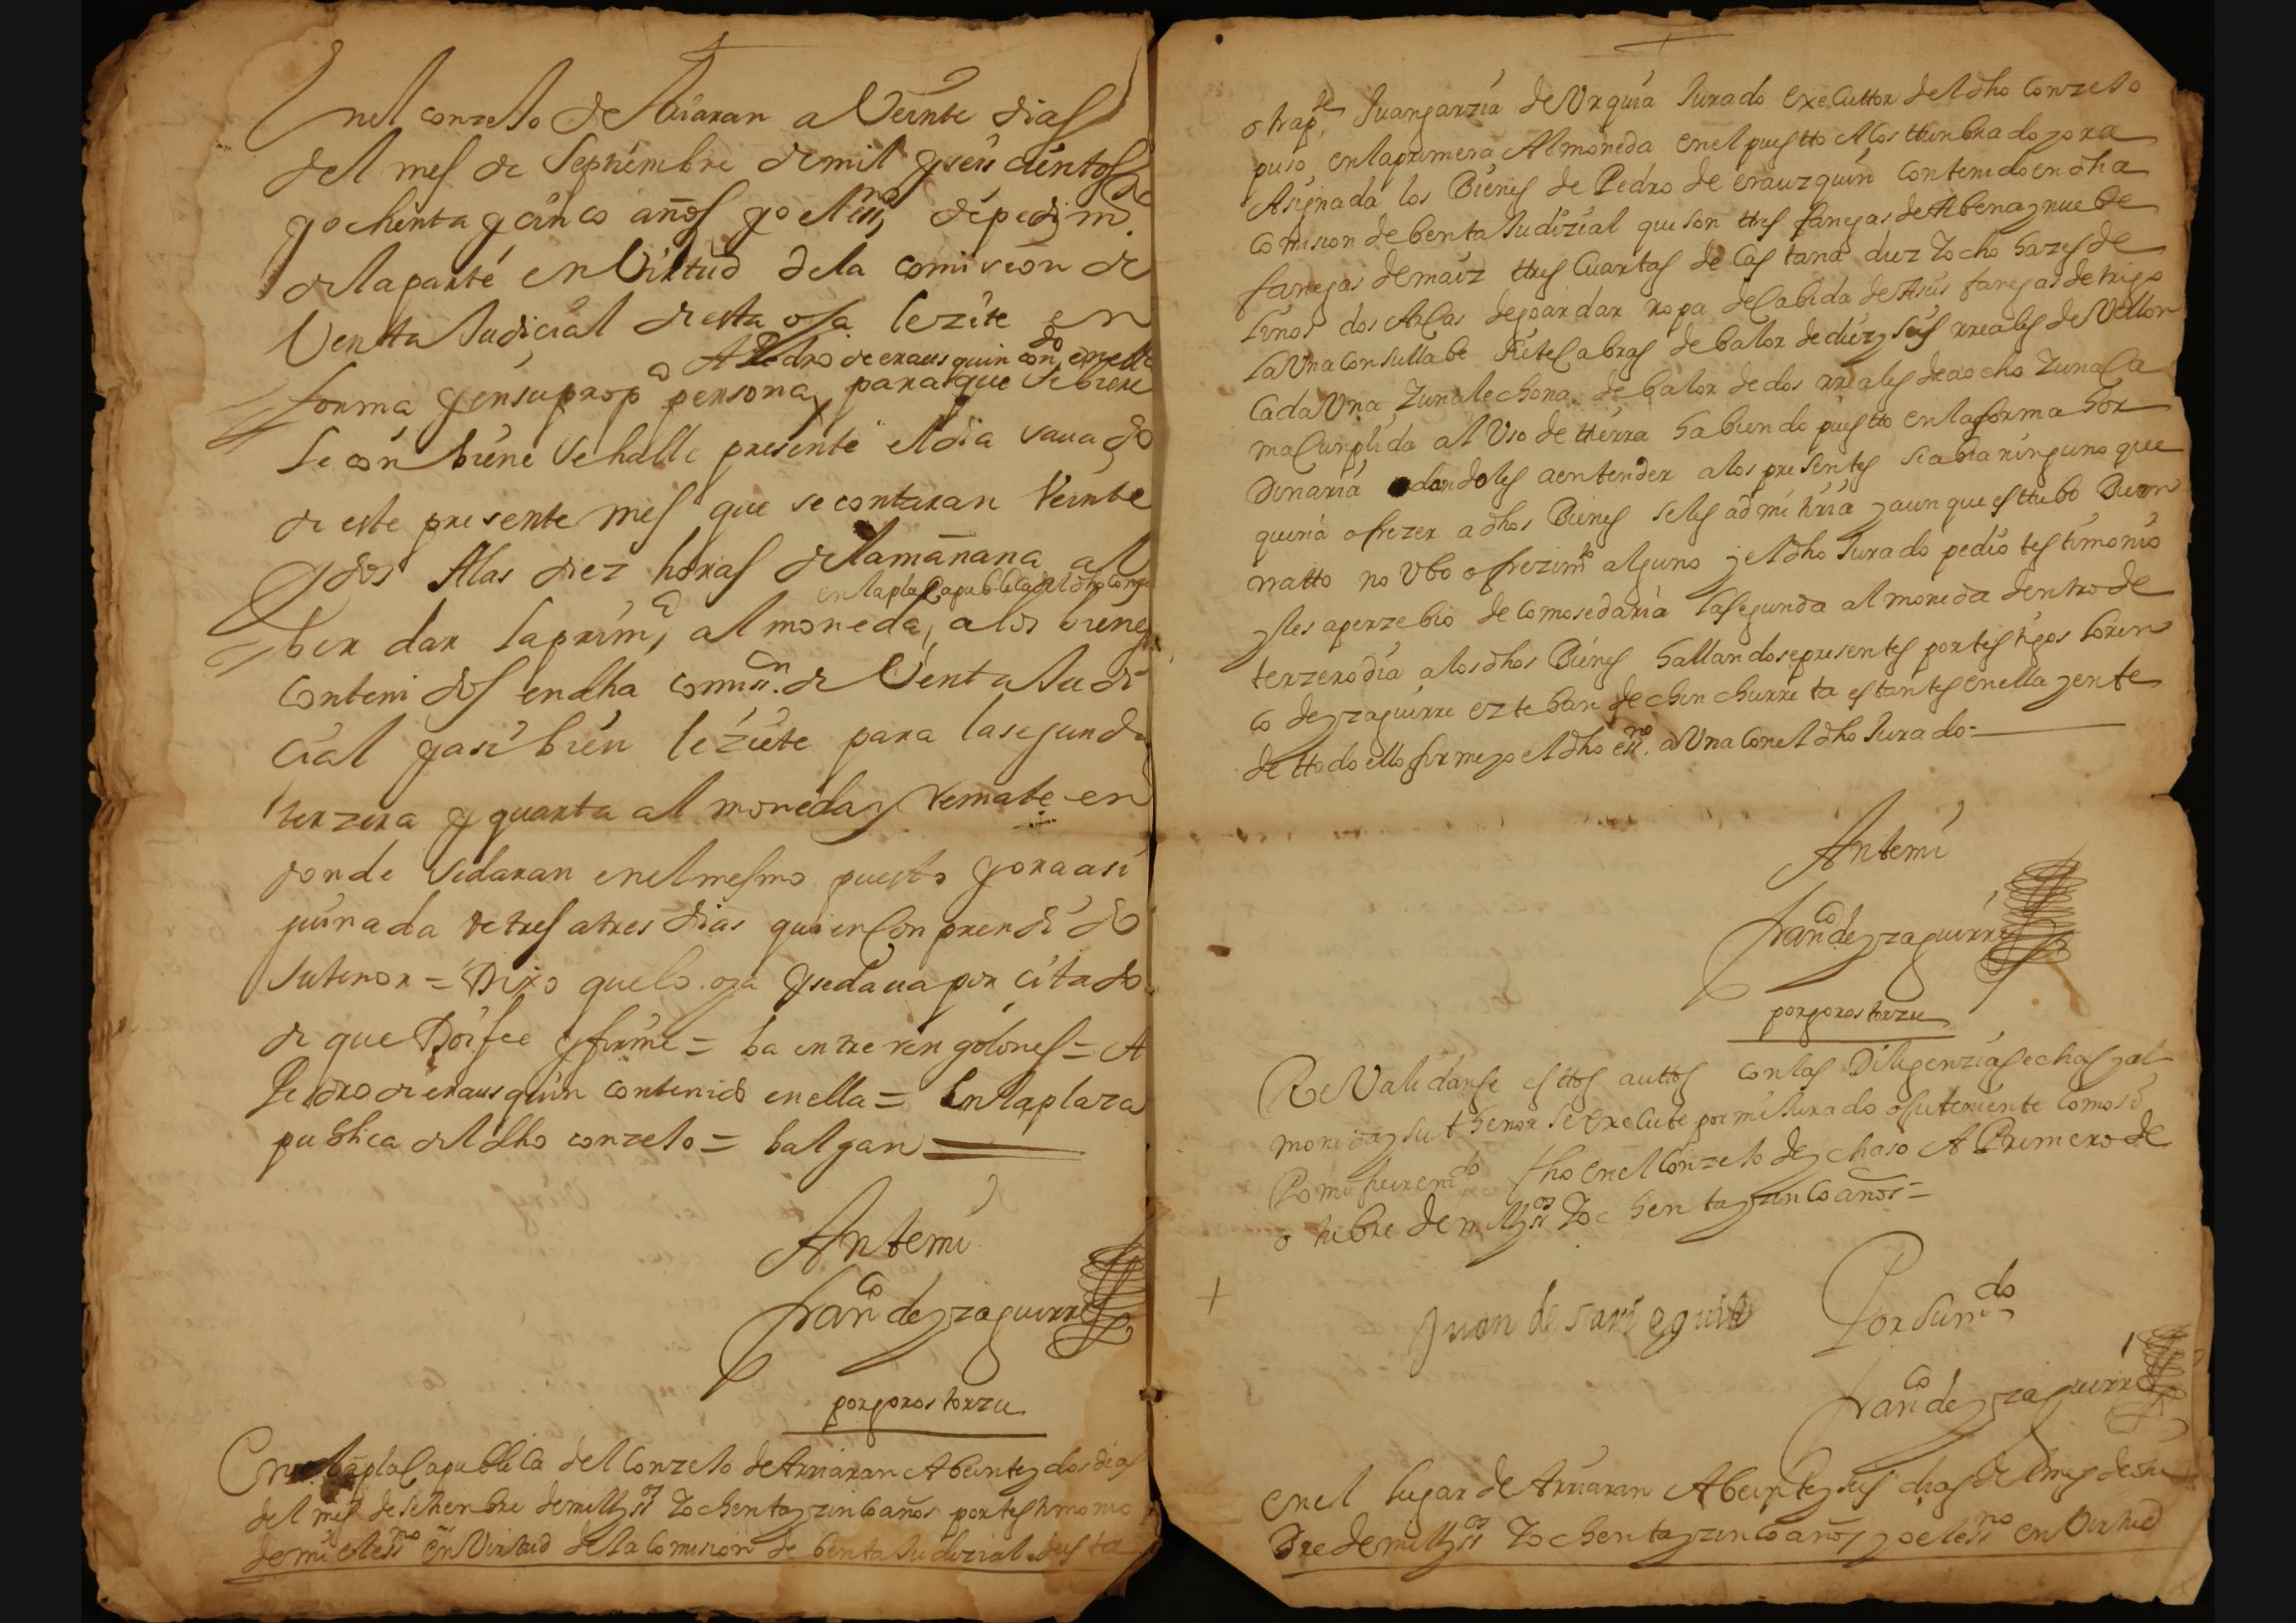 Enel conzeJo de Aríaran a Veínte días
del mes de Septiembre de mil y seis cientos
y ochenta y cinco años yo el essno de pedimto
de la parte en Virtud de la comission de
Venta Judicial de esta oja le zite en
A Pedro de erausquin condo en ella
forma y en su propa persona, para que si biere
le conbiene se halle presente el dia sauado
de este presente mes que se contaran Veinte
y dos A las diez horas de la mañana al
en la plaça publica del dho conzejo
ber dar la prima almoneda, a los bienes
contenidos en dha comissn de Venta Judi
cial y asi bien le zite para la segunda
terzera y quarta almoneda y Remate en
donde se daran en el mesmo puesto y ora asi
guinada de tres a tres dias quien Conprendido
su tenor = Dixo que lo oya y se daua por citado
de que Doi fee y firme = ba entre renglones = A
Pedro de erausquin contenido en ella = En la plaza
publica del dho conzejo = balgan
Antemi
Franco de yzaguirre
porporostorzu
En la plaça publica del Conzejo de Arriaran A beinte y dos dias
del mes de setienbre de mill y ssos y ochenta y zinco años por testimonio
de mi el essno en Virtud de la Comision de benta Judizial de esta
otra pte Juan garzia de Vrquia Jurado executtor del dho Conzejo
puso en la primera Almoneda en el puestto Acosttunbrado y ora
Asignada los Bienes de Pedro de erauzquin Contenido en dha
Comision de benta Judizial que son ttres fanegas de Abena y nuebe
fanegas de maiz ttres Cuartas de Castana diez y ocho hazes de
linos dos Arcas de goardar ropa de Cabida de A seis fanegas de trigo
la Vna con su llabe siete Cabras de balor de diez y seis rreales de Vellon
Cada Vna y una lechona de balor de dos rreales de a ocho y una Ca
ma Cunplida al Vso de ttierra habiendo puestto en la forma hor
dinaria dandoles a entender a los presentes si abia ninguno que
queria ofrezer a dhos Bienes se les admitiria y aunque esttubo Buen
ratto no Vbo ofrezimto alguno y el dho Jurado pedio testimonio
y les aperzebio de como se daria la segunda almoneda dentro de
terzero dia a los dhos Bienes hallandose presentes por testigos Loren
co de yzaguirre ezteban de chinchurreta estantes en ella y en fe
de ttodo ello firme yo el dho essno a Vna con el dho Jurado =
Antemi
Franco de yzaguirre
porporostorzu
ReValidanse esttos auttos con las Diligenzias echas y al
moneda y su thenor se execute por mi Jurado o su teniente Como si
fho en el Conzejo de ychaso A Primero de
otubre de mill y ssos y ochenta y zinco años =
Juan de sarieguia
Por su mdo
Franco de yzaguirre
En el lugar de Arriaran A beinte y seis dias del mes de
bre de mill y ssos y ochenta y zinco años yo el essno en Virtud